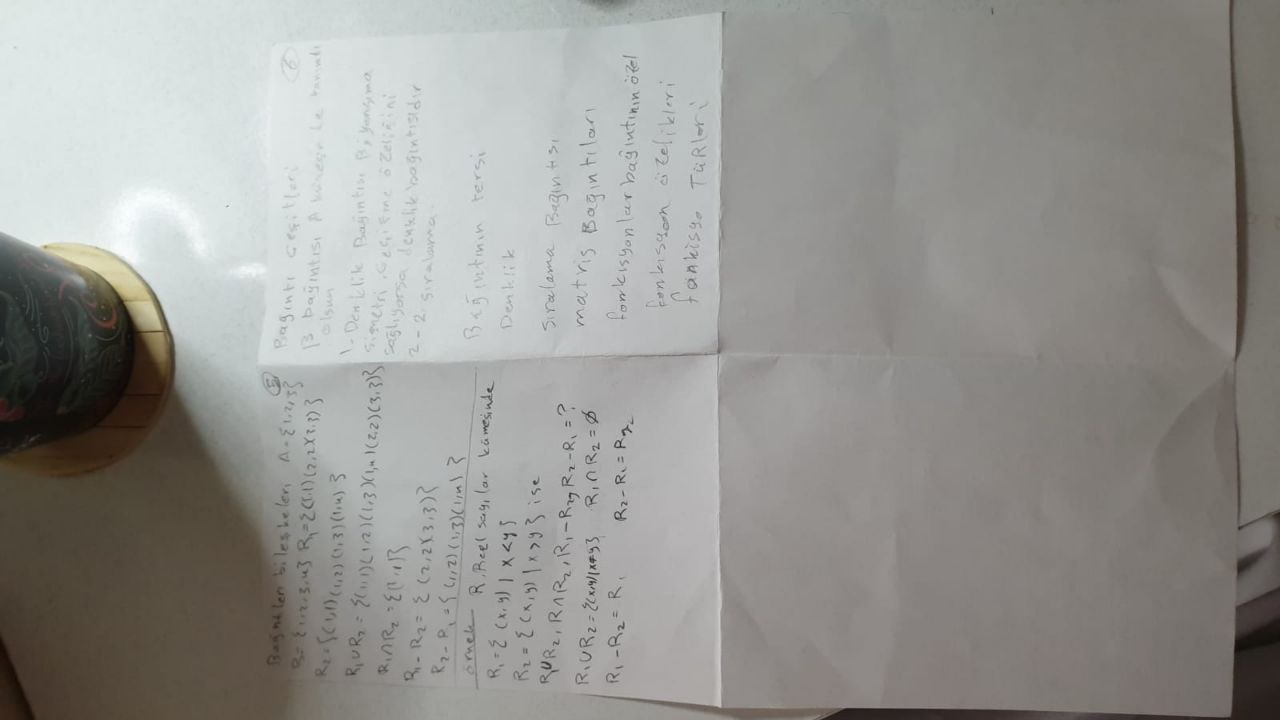 Bağıntıların bileşkeleri A={1,2,3} ⑤
B={1,2,3,4} R₁={(1,1)(2,2)(3,3)}
R₂={(1,1)(1,2)(1,3)(1,4)}
R₁∪R₂={(1,1)(1,2)(1,3)(1,4)(2,2)(3,3)}
R₁∩R₂={(1,1)}
R₁-R₂={(2,2)(3,3)}
R₂-R₁={(1,2)(1,3)(1,4)}
örnek R, Reel sayılar kümesinde
R₁={(x,y)|x<y}
R₂={(x,y)|x>y} ise
R₁∪R₂, R∩R₂, R₁-R₂, R₂-R₁=?
R₁∪R₂={(x,y)|x≠y} R₁∩R₂=∅
R₁-R₂=R₁ R₂-R₁=R₂
Bağıntı çeşitleri ⑥
β bağıntısı A kümesinde tanımlı
olsun
1-Denklik Bağıntısı β, yansıma
simetri, geçişme özeliğini
sağlıyorsa denklik bağıntısıdır
2-2, sıralama.
Bağıntının tersi
Denklik
sıralama Bağıntısı
matris Bağıntıları
fonkisyonlar bağıntının özel
fonkisyon özelikleri
fonkisyo TüRleri